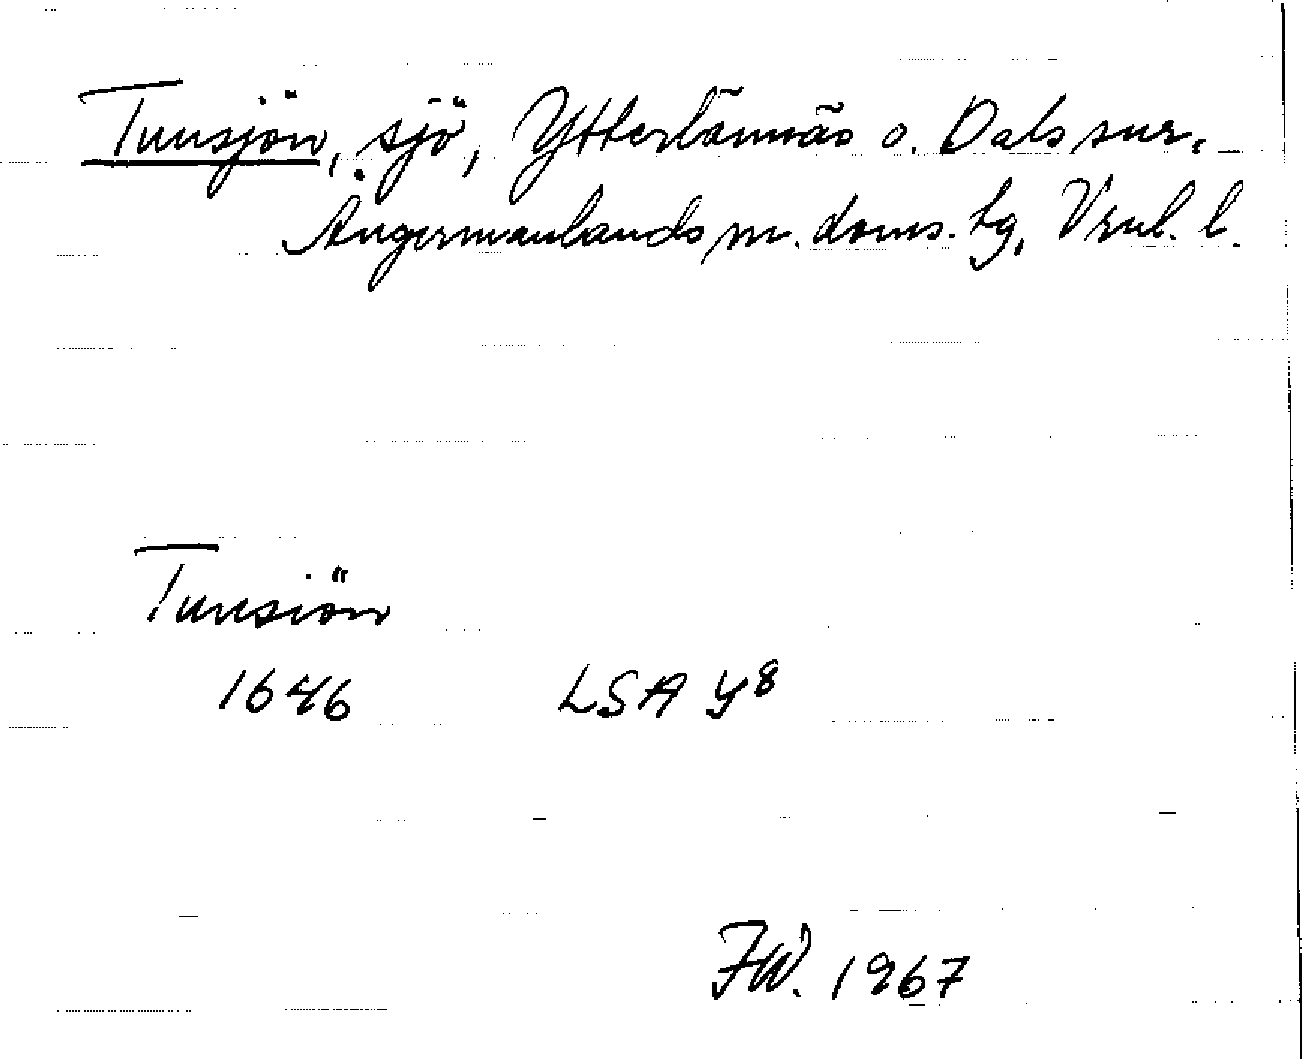 Tunsjön, sjö, Ytterlännäs o. Dals snr.
Ångermanlands m. doms. tg, Vrnl. l.
Tunsiön
1646 LSA Y8
FW. 1967